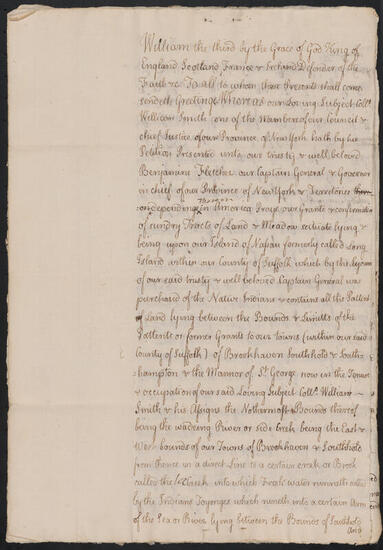 William the third by the Grace of God King of
England Scotland France & Ireland Defender of the
Faith &c To all to whom these Presents shall come
sendeth Greeting Whereas our Loving Subject Coll.
William Smith one of the Members of our Council &
chief Justice of our Province of New York hath by his
Petition Presented unto our trusty & well beloved
Benjamin Fletcher our Captain General & Governor
in chief of our Province of New York &
thereon
depending in America Prayed our Grant & confirmation
of sundry Tracts of Land & Meadow scituate lying &
being upon our Island of Nassau formerly called Long
Island within our County of Suffolk which by the
of our said trusty & well beloved Captain General was
purchased of the Native Indians & contains all the
of Land lying between the Bounds & Limitts of the
Pattents or former Grants to our Towns (within our said
County of Suffolk) of Brookhaven Southhold & South
hampton & the Mannor of St. George now in the Tenure
& occupation of our said Loving Subject Coll. William
Smith & his Assigns the Bounds thereof
being the wadeing River or Creek being the East &
West bounds of our Towns of Brookhaven & Southhold
from thence in a direct Line to a certain creek or Brook
called the into which Fresh water runneth called
by the Indians which runeth into a certain Arm
of the Sea or River lying between the Bounds of Southhold
and